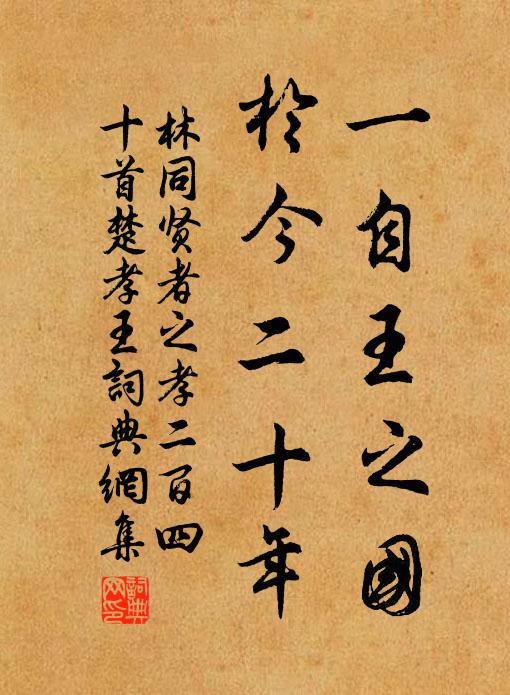 一自王之國
於今二十年
林同贤者之孝二百四
十首楚孝王詞典網集
詞典
网印